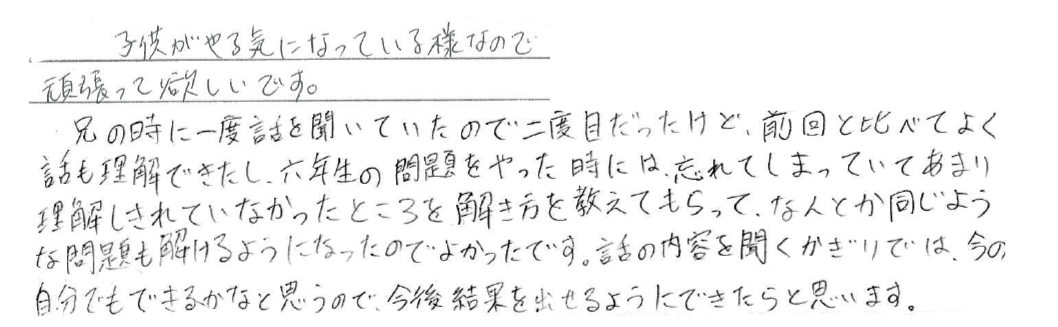 子供がやる気になっている様なので
頑張って欲しいです。
兄の時に一度話を聞いていたので二度目だったけど、前回と比べてよく
話も理解できたし、六年生の問題をやった時には、忘れてしまっていてあまり
理解しきれていなかったところを解き方を教えてもらって、なんとか同じよう
な問題も解けるようになったのでよかったです。話の内容を聞くかぎりでは、今の
自分でもできるかなと思うので、今後結果を出せるようにできたらと思います。